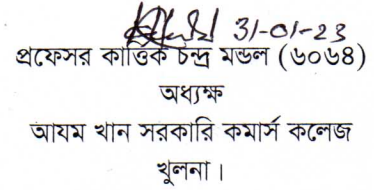 31-01-23
প্রফেসর কার্ত্তিক চন্দ্র মন্ডল (৬০৬৪)
অধ্যক্ষ
আযম খান সরকারি কমার্স কলেজ
খুলনা।